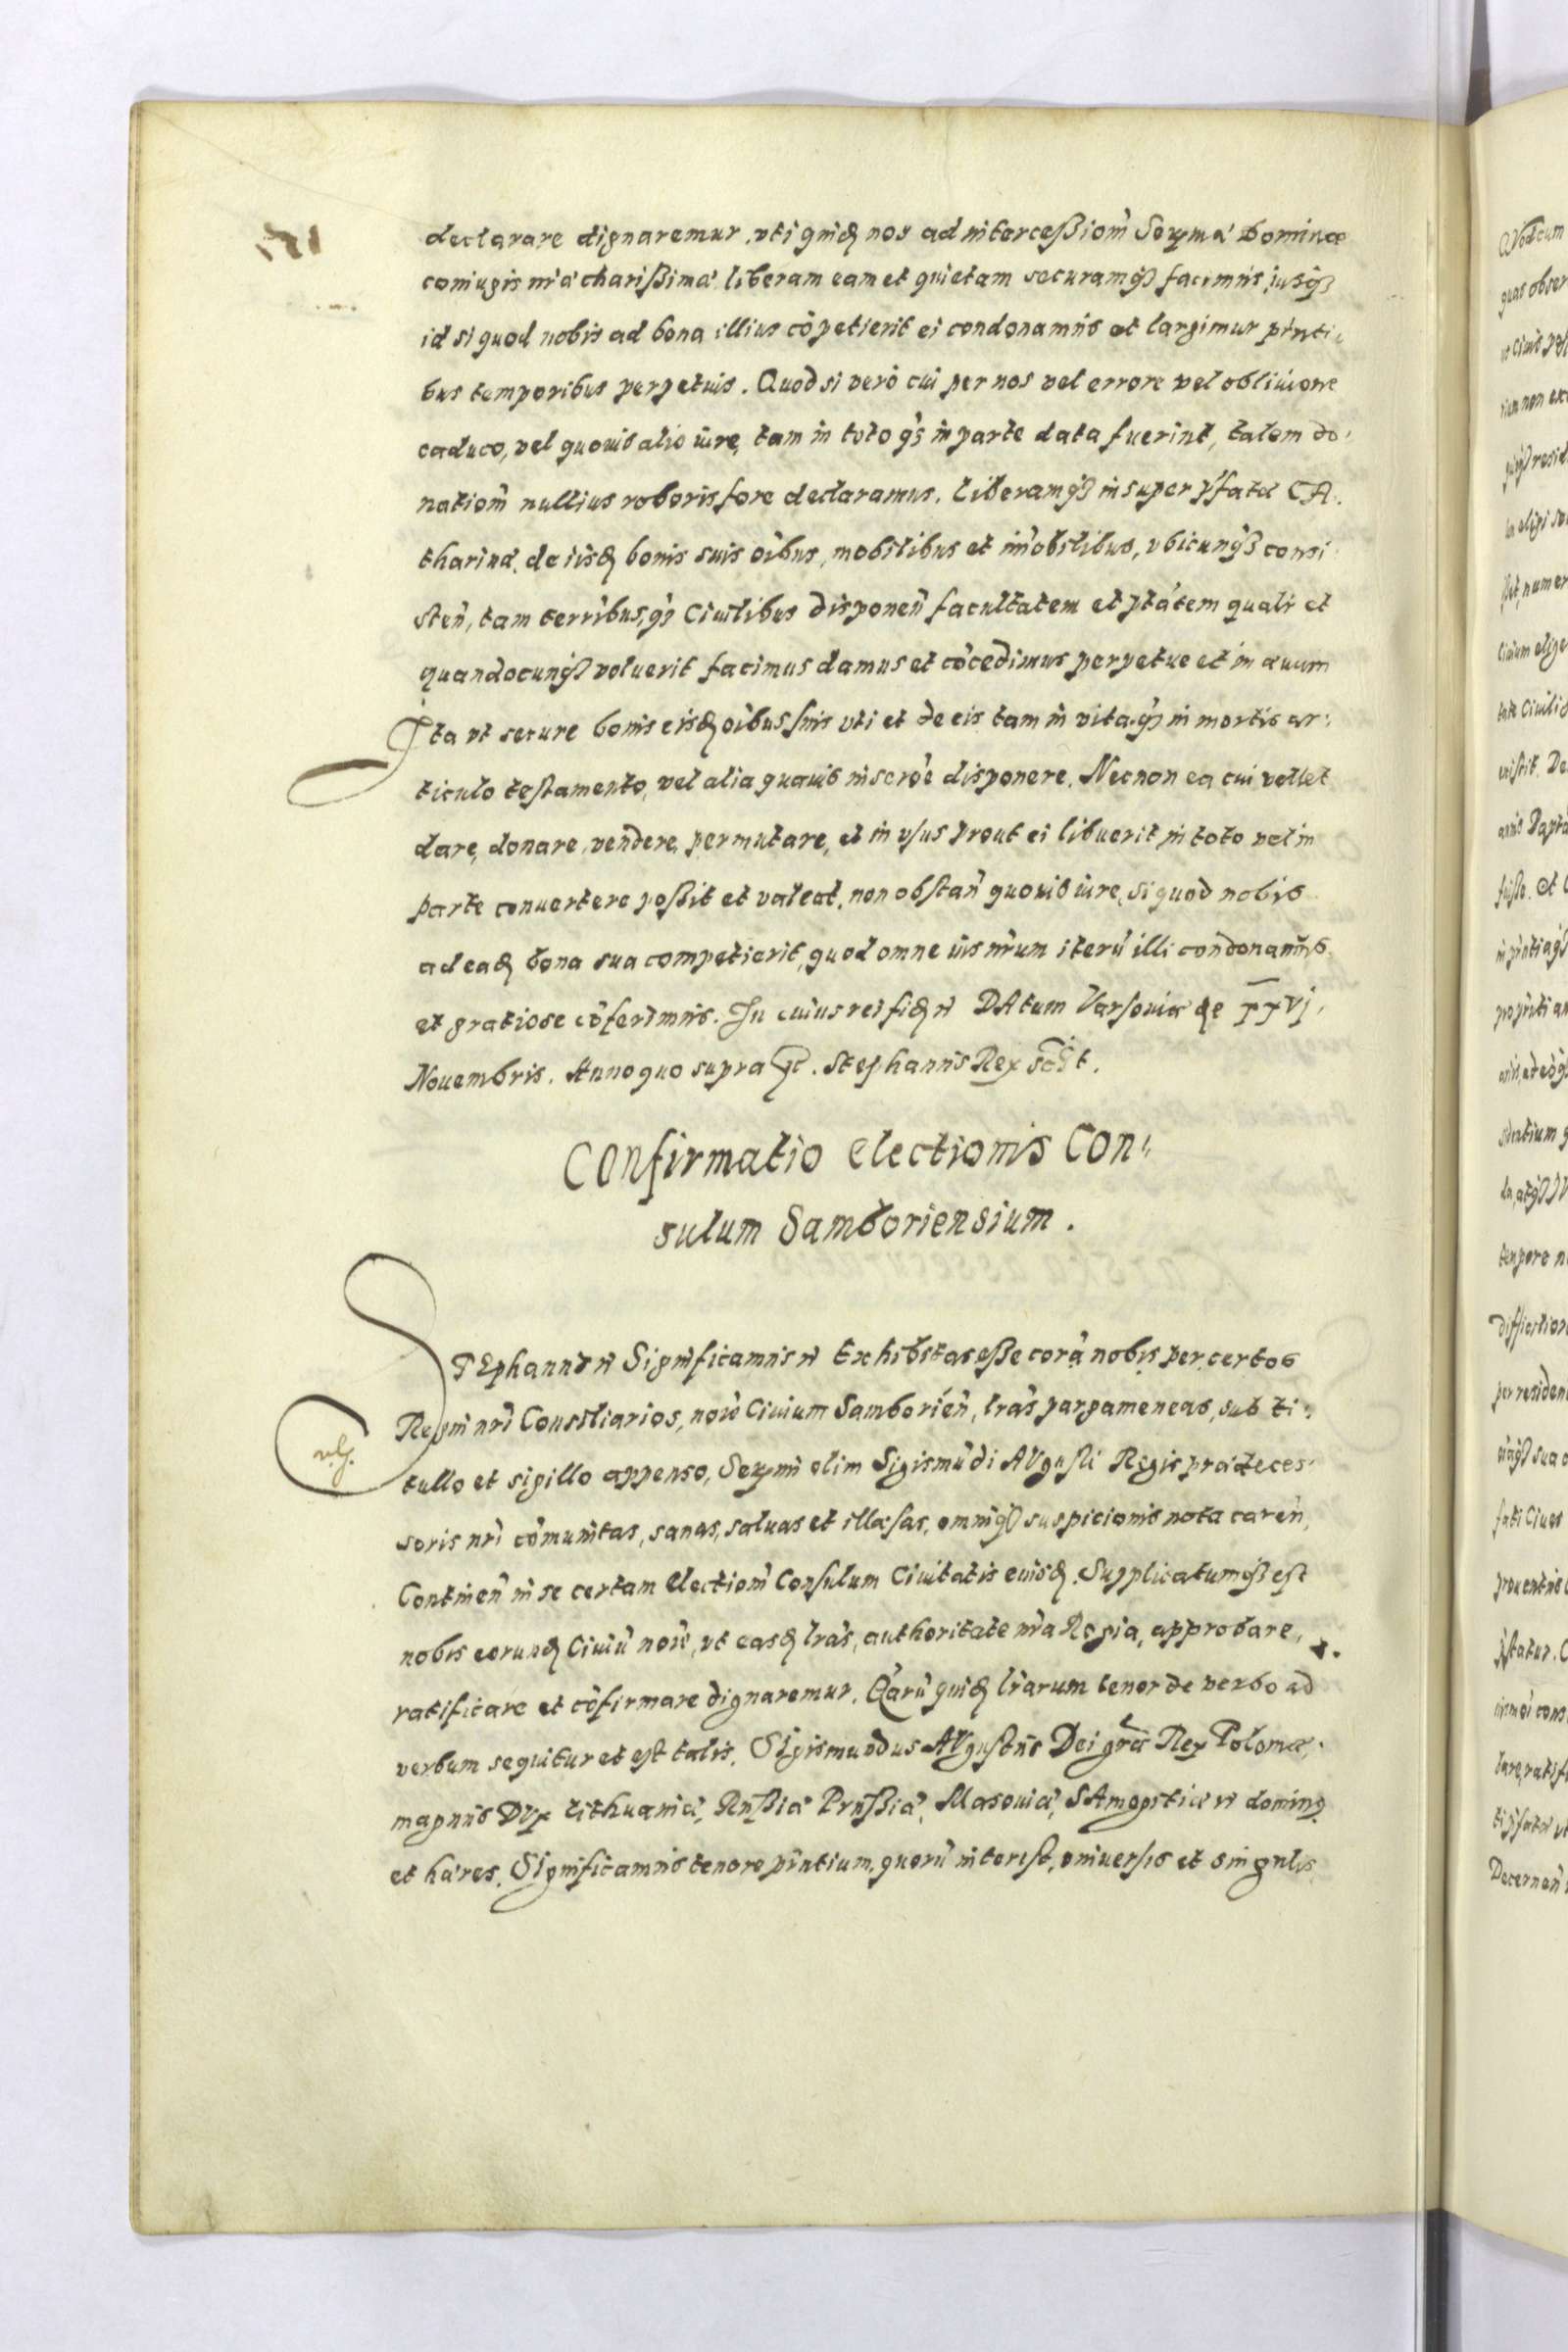 declarare dignaremur, vti quidẽ nos ad intercessionẽ Serma͂ Dominæ
coniugis nr̃æ charissimæ liberam eam et quietam securamq3 facimus, iusq3
id si quod nobis ad bona illius cõpetierit ei condonamus et largimur pñti,
bus temporibus perpetuis. Quod si vero cui per nos vel errore vel obliuione
caduco, vel quouis alio iure, tam in toto q̃3 in parte data fuerint, talem do,
nationẽ nullius roboris fore declaramus. Liberamq3 insuper p̃fatæ CA,
tharinæ, de iisdẽ bonis suis oĩbus, mobilibus et im̃obilibus, vbicunq3 consi
steñ, tam terrr̃ibus, q̃3 Ciuilibus disponeñ facultatem et ptãtem quali et
quandocunq3 voluerit facimus damus et cõcedimus perpetue et in æuum
Ita vt secure bonis eisdẽ oĩbus suis vti et de eis tam in vita q̃3 in mortis ar,
ticulo testamento, vel alia quauis disponere. Necnon ea cui vellet
dare, donare, vendere, permutare, et in vsus prout ei libuerit, in toto vel in
parte conuertere possit et valeat, non obstañ quouis iure, si quod nobis
ad eadẽ bona sua competierit, quod omne ius nr̃um iterũ illi condonamus
et gratiose cõferimus. In cuius rei fidẽ rt̃ DAtum Varsouiæ de xxvj,
Nouembris. Anno quo supra Stephanus Rex sc̃st.
COnfirmatio electionis Con,
sulum Samboriensium.
STEphanus rt̃ Significamus rt̃ Exhibitas esse corã nobis per certos
Regni nr̃i Consiliarios, noĩe Ciuium Samborieñ, lr̃as pargameneas, sub ti,
tullo et sigillo appenso, Sermi olim Sigismũdi AVgusti Regis prædeces,
soris nr̃i cõmunitas, sanas, saluas et illæsas, omniq3 suspicionis nota careñ,
Contineñ in se certam Electionẽ Consulum Ciuitatis eiusdẽ. Supplicatumq3 est
nobis eorundẽ Ciuiũ noĩe, vt easdẽ lr̃as, authoritate nr̃a Regia, approbare,
ratificare et cõfirmare dignaremur. Q̃arũ quidẽ lr̃arum tenor de verbo ad
verbum sequitur et est talis. SIgismundus AVgustus Dei gr̃a Rex Poloniæ,
magnus DVx Lithuaniæ, Russiæ Prussiæ, Masouiæ, SAmogitiæ rt̃ dominq
et hæres. SIgnificamus tenore pñtium, quorũ interest, vniuersis et singulis